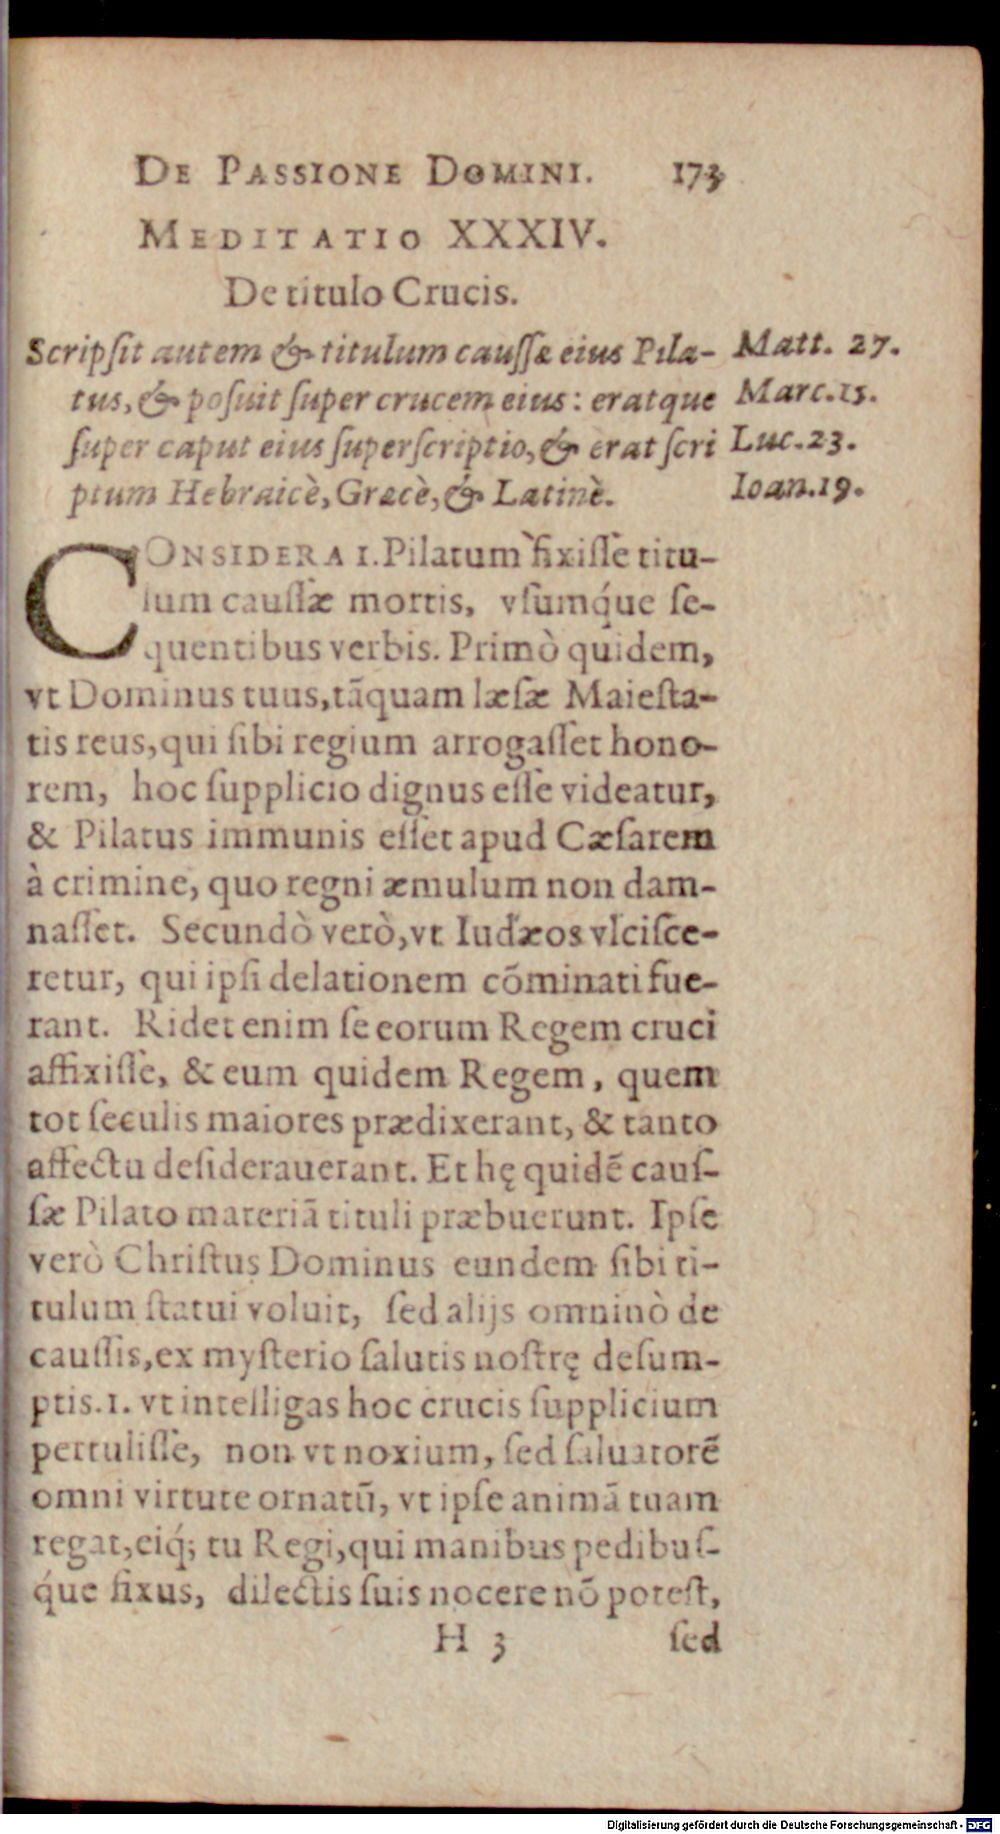 DE PASSIONE DOMINI. 173
MEDITATIO XXXIV.
De titulo Crucis.
Scripſit autem & titulum cauſſæ eius Pila-
tus, & poſuit ſuper crucem eius: eratque
ſuper caput eius ſuperſcriptio, & erat ſcri
ptum Hebraicè, Græcè, & Latinè.
Matt. 27.
Marc. 15.
Luc. 23.
Ioan. 19.
CONSIDERA 1. Pilatum fixiſſe titu-
lum cauſſæ mortis, vſumq́ue ſe-
quentibus verbis. Primò quidem,
vt Dominus tuus, tãquam læſæ Maieſta-
tis reus, qui ſibi regium arrogaſſet hono-
rem, hoc ſupplicio dignus eſſe videatur,
& Pilatus immunis eſſet apud Cæſarem
à crimine, quo regni æmulum non dam-
naſſet. Secundò verò, vt Iudæos vlciſce-
retur, qui ipſi delationem cõminati fue-
rant. Ridet enim ſe eorum Regem cruci
affixiſſe, & eum quidem Regem, quem
tot ſeculis maiores prædixerant, & tanto
affectu deſiderauerant. Et hę quidẽ cauſ-
ſæ Pilato materiã tituli præbuerunt. Ipſe
verò Chriſtus Dominus eundem ſibi ti-
tulum ſtatui voluit, ſed alijs omninò de
cauſſis, ex myſterio ſalutis noſtrę deſum-
ptis. 1. vt intelligas hoc crucis ſupplicium
pertuliſſe, non vt noxium, ſed ſaluatorẽ
omni virtute ornatũ, vt ipſe animã tuam
regat, eiq́; tu Regi, qui manibus pedibuſ-
q́ue fixus, dilectis ſuis nocere nõ poteſt,
H 3 ſed
Digitalisierung gefördert durch die Deutsche Forschungsgemeinschaft - DFG